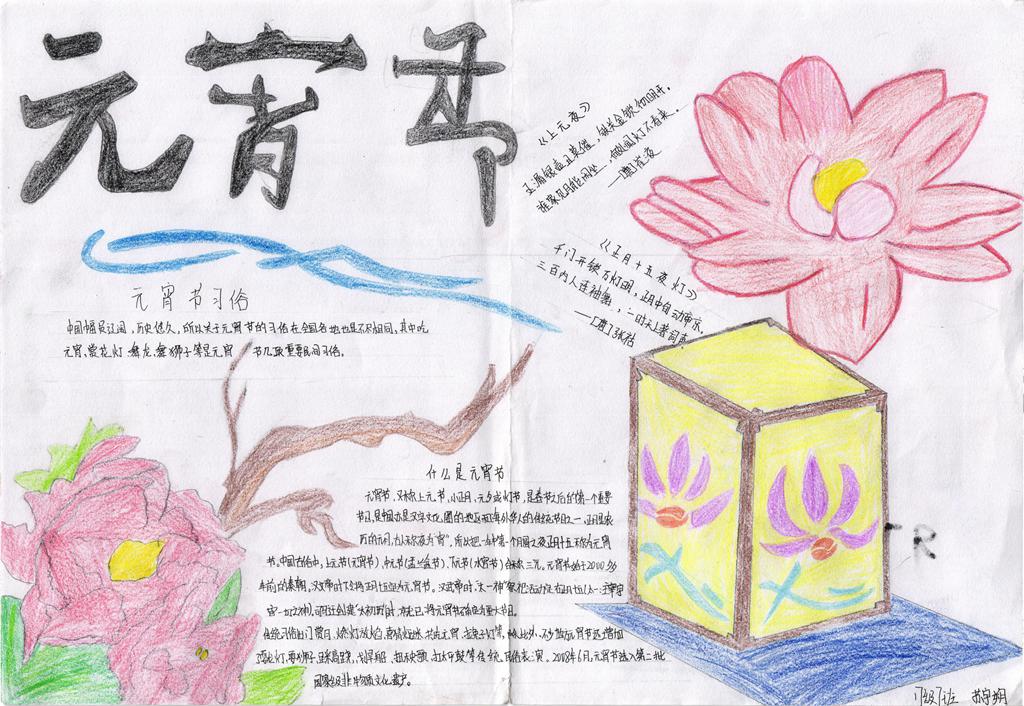 元宵节
《上元夜》
玉漏银壶且莫催，铁关金锁彻明开。
谁家见月能闲坐，何处闻灯不看来。
——[唐]崔液
《正月十五夜灯》
千门开锁万灯明，正月中旬动帝京。
三百内人连袖舞，一时天上著词声
——[唐]张祜
元宵节习俗
中国幅员辽阔，历史悠久，所以关于元宵节的习俗在全国各地也是不尽相同，其中吃
元宵、赏花灯、舞龙、舞狮子等是元宵节几项重要民间习俗。
什么是元宵节
元宵节，又称上元节，小正月，元夕或灯节，是春节之后的第一个重要
节日，是中国亦是汉字文化圈的地区和海外华人的传统节日之一，正月是农
历的元月，古人称夜为"宵"，所以把一年中第一个月圆之夜正月十五称为元宵
节。中国古俗中，上元节（元宵节）、中元节（孟兰盆节）、下元节（水官节）合称三元。元宵节始于2000多
年前的秦朝。汉文帝时下令将正月十五定为元宵节。汉武帝时，"太一神"祭祀活动定在正月十五（太一：主宰宇
宙一切之神）。司马迁创建"太初历"时，就已将元宵节确定为重大节日。
传统习俗出门赏月、燃灯放焰、喜猜灯谜、共吃元宵、拉兔子灯等。此外，不少地方元宵节还增加
耍龙灯、耍狮子、踩高跷、划旱船、扭秧歌、打太平鼓等传统民俗表演。2008年6月，元宵节选入第二批
国家级非物质文化遗产。